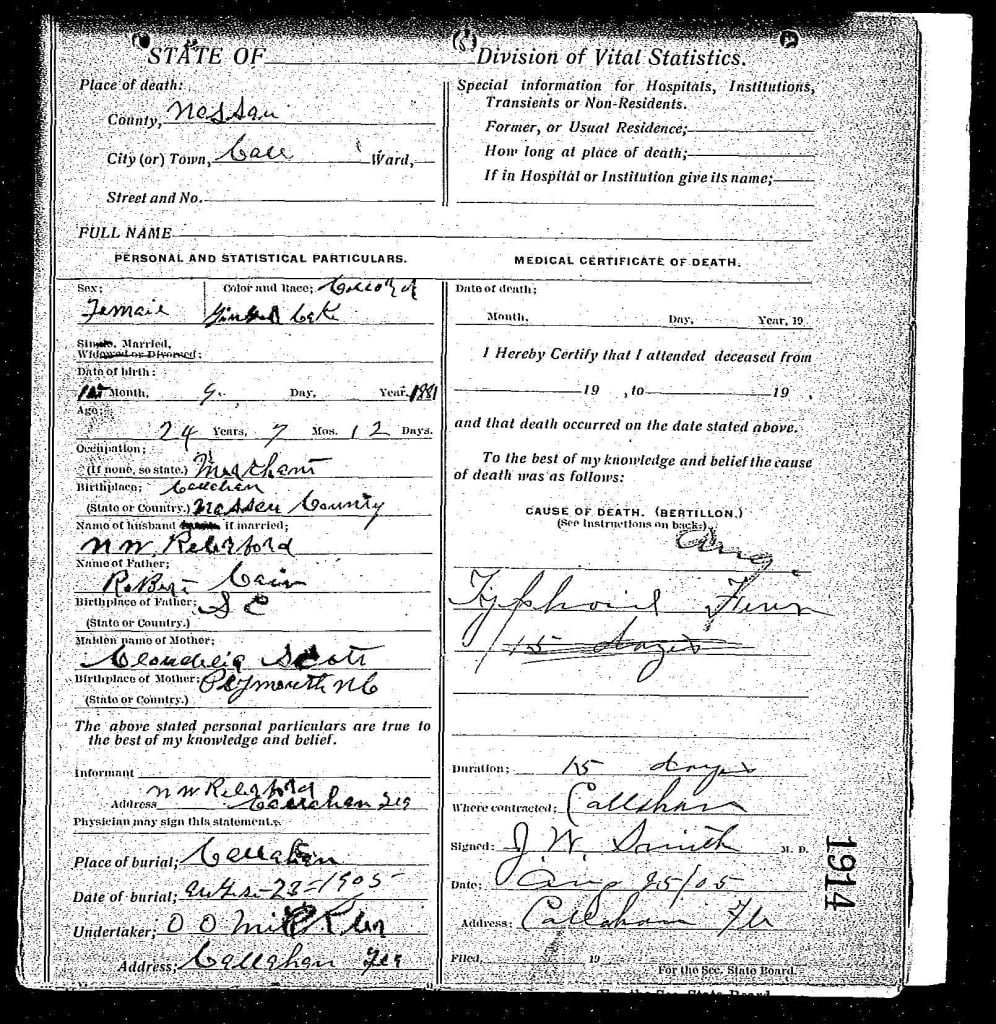 STATE OF
Division of Vital Statistics.
Place of death:
County, Nassau
City (or) Town, Ward,
Street and No.
Special information for Hospitals, Institutions,
Transients or Non-Residents.
Former, or Usual Residence;
How long at place of death;
If in Hospital or Institution give its name;
FULL NAME
PERSONAL AND STATISTICAL PARTICULARS.
Sex; Color and Race;
Female
Single, Married,
Widowed or Divorced;
Date of birth:
Month, 9 Day, Year, 1881
Age;
24 Years, 7 Mos. 12 Days.
Occupation;
(If none, so state.)
Birthplace; Callahan
(State or Country.) Nassau County
Name of husband if married;
N W
Name of Father;
Robert Cain
Birthplace of Father; S C
(State or Country.)
Maiden name of Mother;
Scott
Birthplace of Mother; Plymouth N C
(State or Country.)
The above stated personal particulars are true to
the best of my knowledge and belief.
Informant
N W
Address Callahan Fla
Physician may sign this statement.
Place of burial; Callahan
Date of burial; 1905
Undertaker; O O
Address; Callahan Fla
MEDICAL CERTIFICATE OF DEATH.
Date of death;
Month, Day, Year, 19
I Hereby Certify that I attended deceased from
19 , to 19 ,
and that death occurred on the date stated above.
To the best of my knowledge and belief the cause
of death was as follows:
CAUSE OF DEATH. (BERTILLON.)
(See instructions on back.)
Typhoid Fever
15 days
Duration; 15 days
Where contracted; Callahan
Signed: J. W. Smith M. D.
Date; Aug 25/05
Address: Callahan Fla
Filed, 19
For the Sec. State Board.
1914